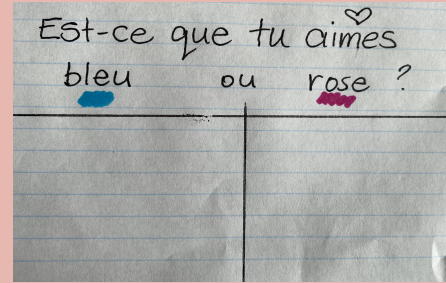 Est-ce que tu aimes
bleu ou rose ?